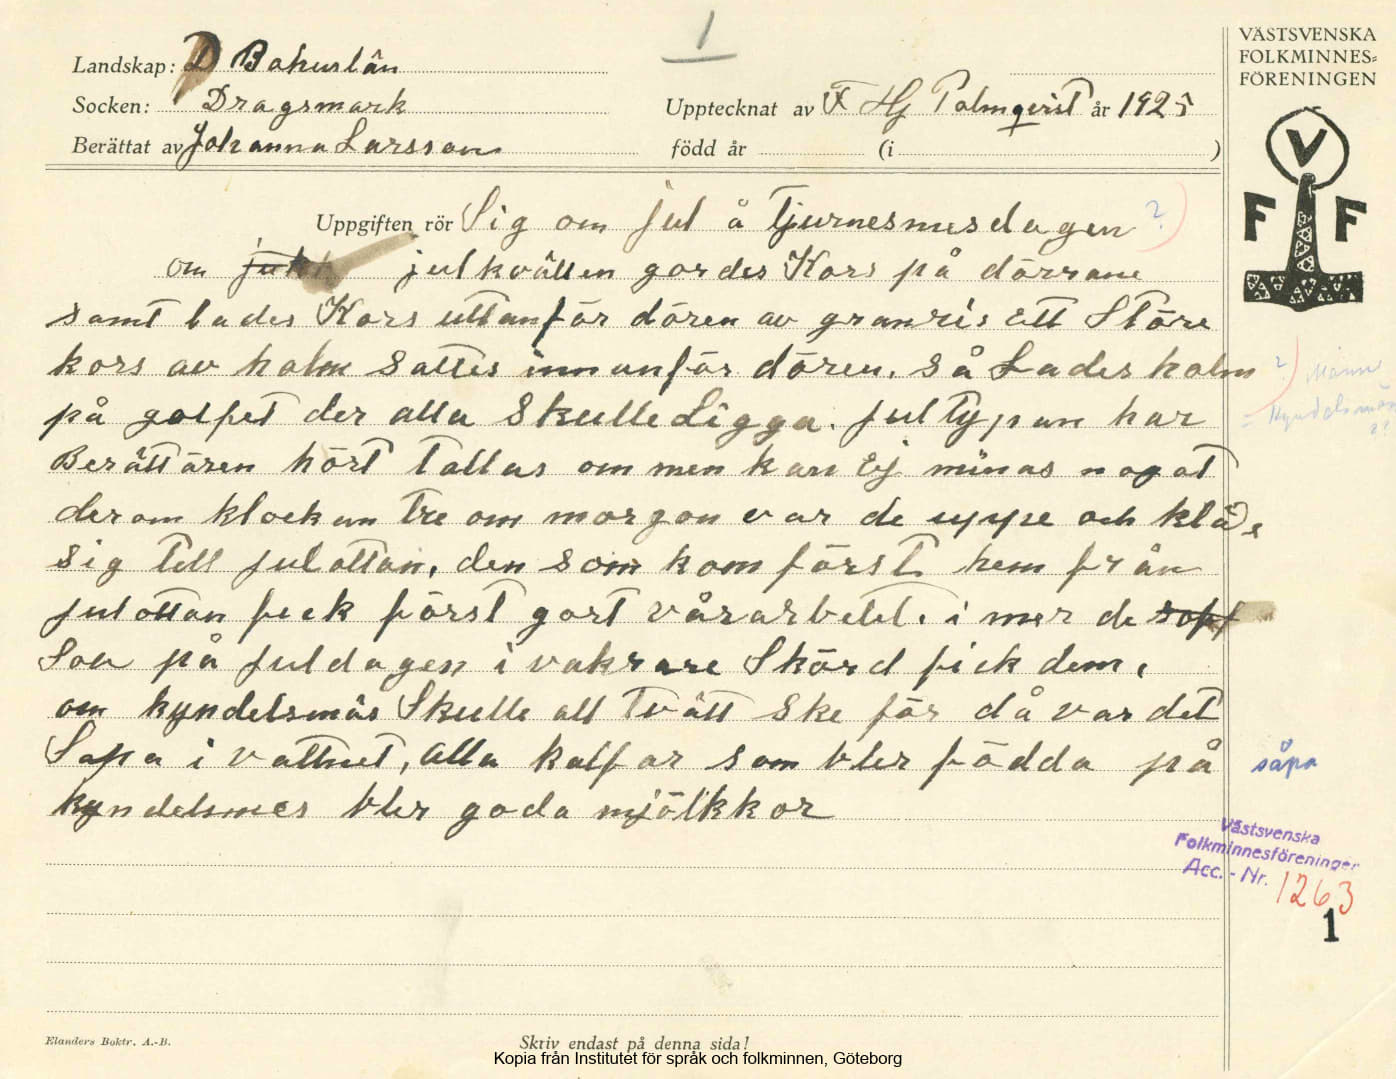 1
VÄSTSVENSKA
FOLKMINNES=
FÖRENINGEN
Landskap: Bohuslän
Socken: Dragsmark
Upptecknat av F Hj Palmqvist år 1925
Berättat av Johanna Larsson
född år (i )
V
F F
Uppgiften rör Sig om jul å tjurnesmesdagen ?
om julkvällen gordes Kors på dörrane
samt lades Kors uttanför dören av granris Ett Störe
kors av halm sattes innanför dören. så Lades halm
på golfvet der alla Skulle Ligga. jultypan har
Berättaren hört tallas om men kan Ej minas nogot
derom klockan tre om morgon var de uppe och klädde
sig till julottan, den som kom först hem från
julottan fick först gort vårarbetet. i mer de
Sov på juldagen i vakrare Skörd fick dem.
om kyndelsmäs Skulle all tvätt ske för då var det
Sapa i vattnet, alla kalfvar som blev födda på
såpa
kyndelsmes blev goda mjölkkor
Västsvenska
Folkminnesföreningen
Acc. - Nr. 1263
1
Elanders Boktr. A.-B.
Skriv endast på denna sida!
Kopia från Institutet för språk och folkminnen, Göteborg